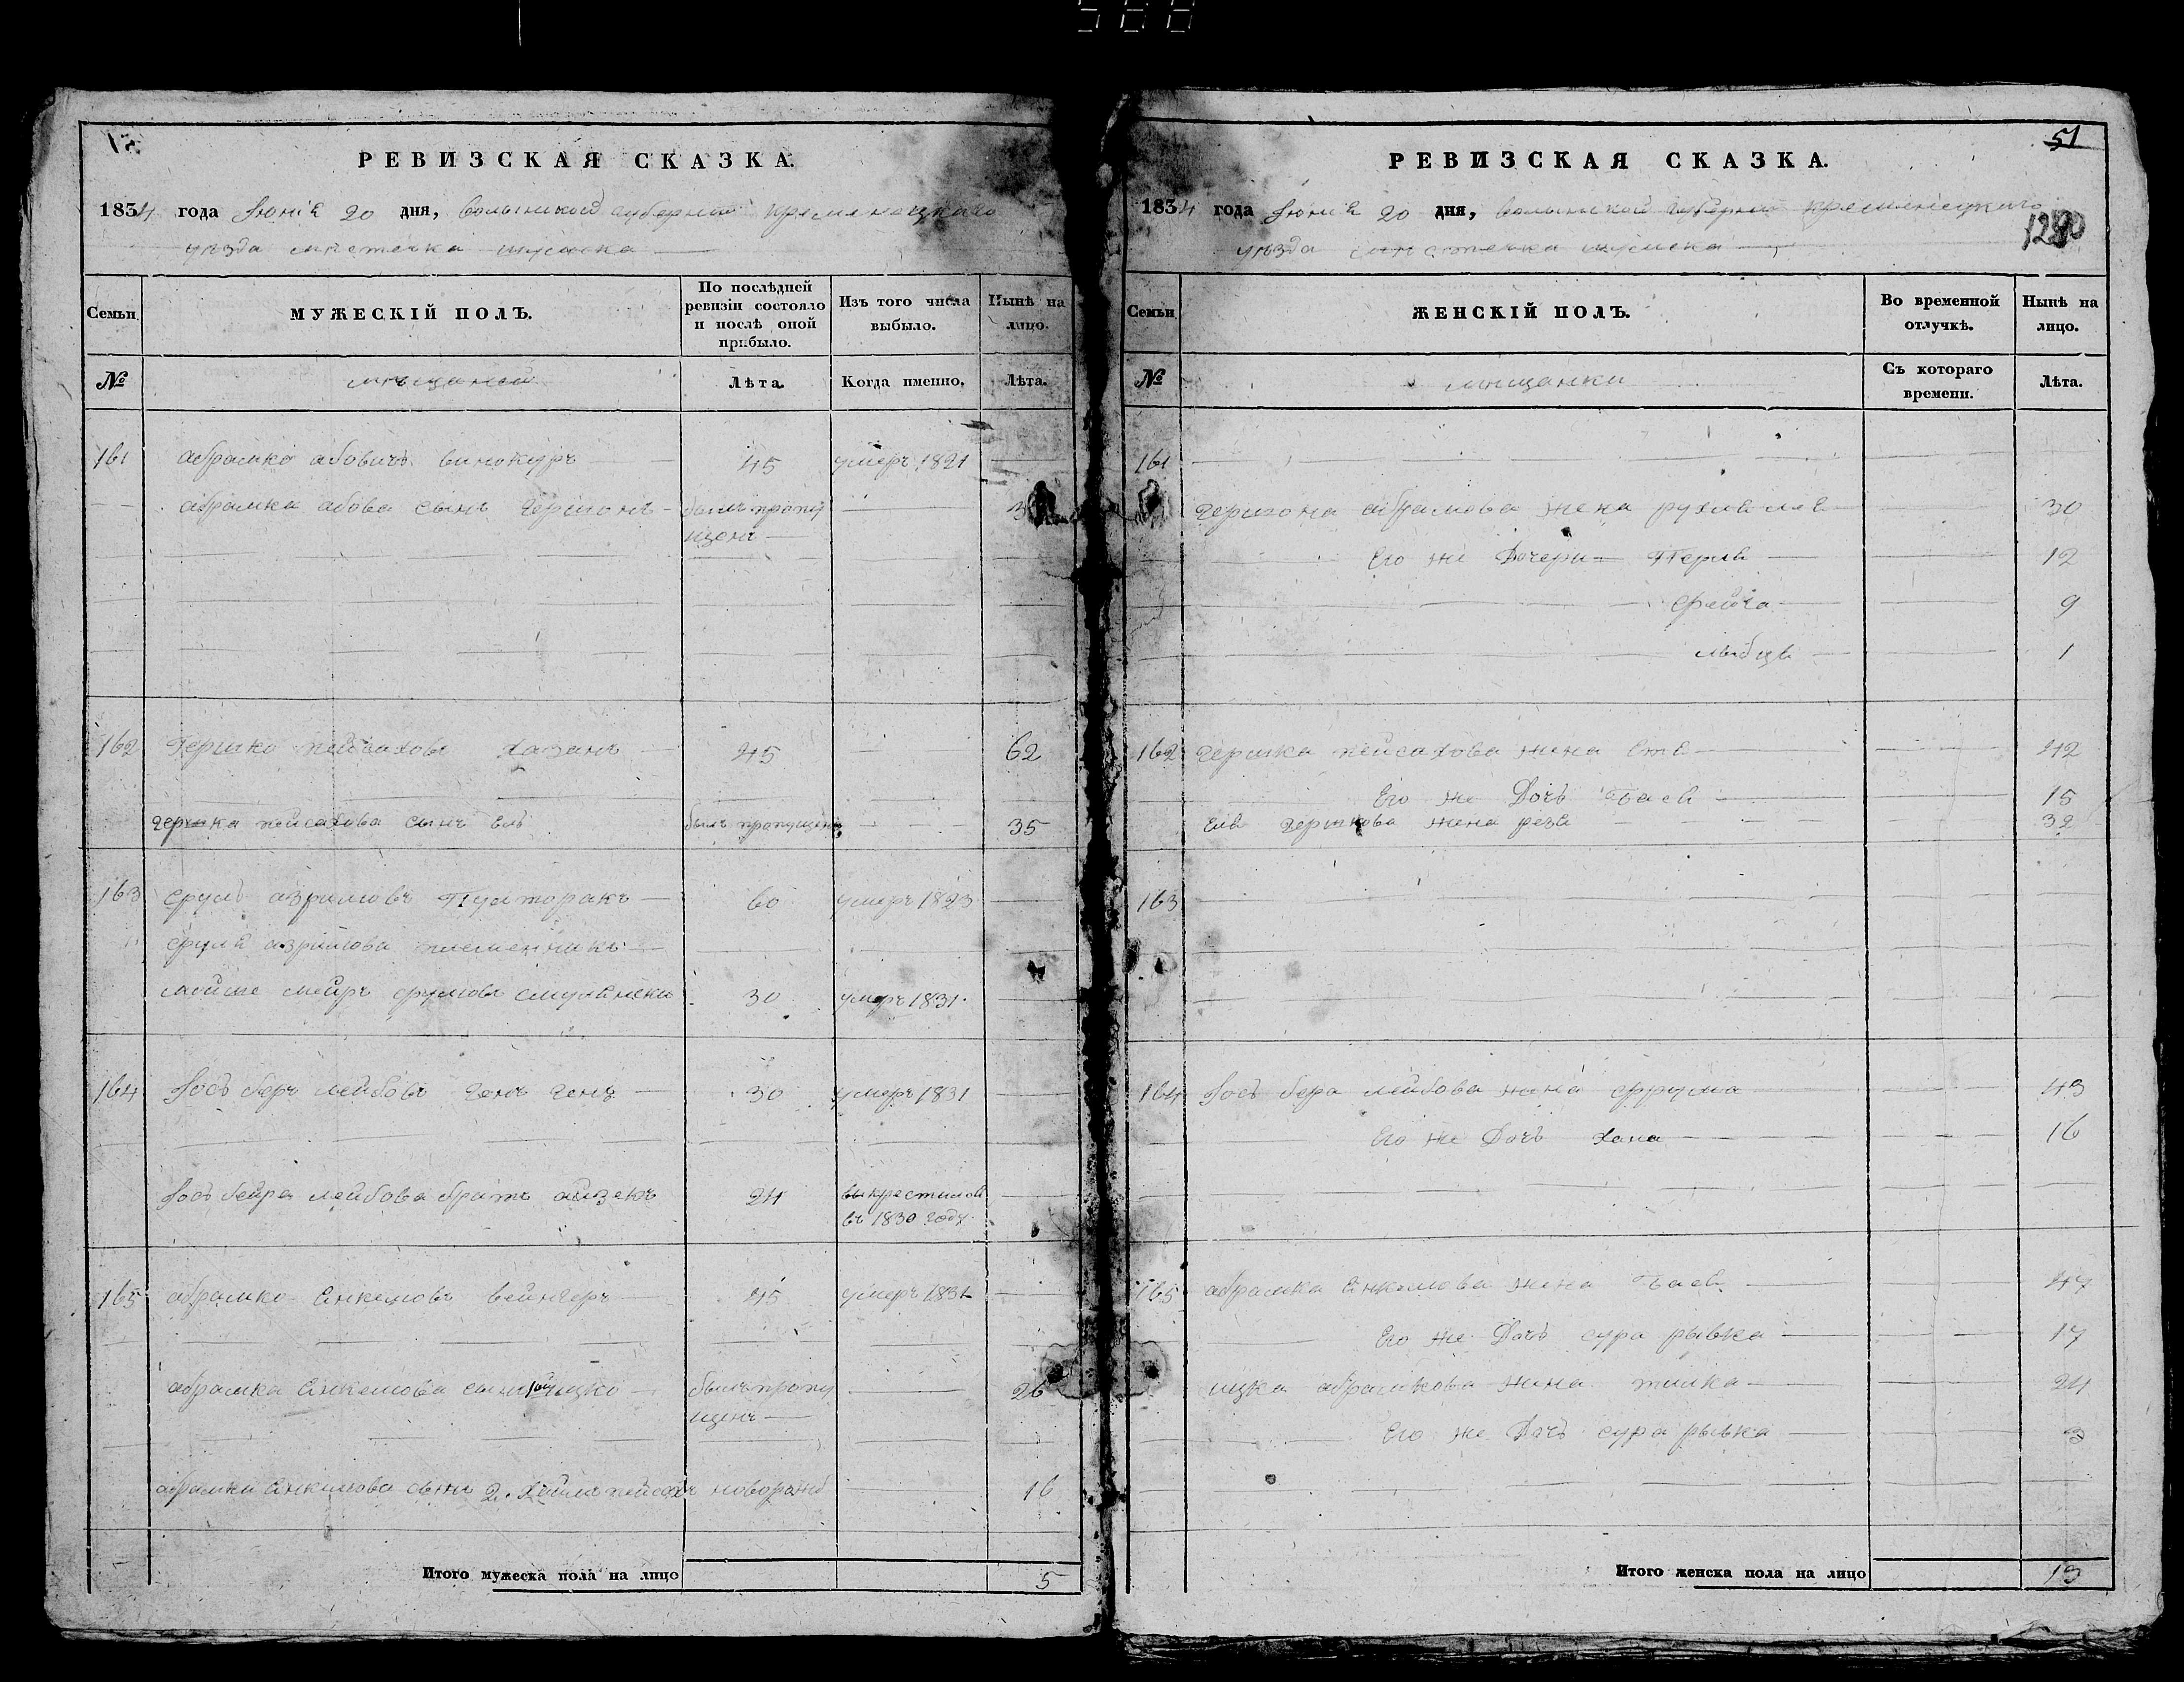 588
РЕВИЗСКАЯ СКАЗКА.
1834 года Июня 20 дня, Волынской губернии Кременецкаго
уезда местечка Шумска
Семьи
МУЖЕСКІЙ ПОЛЪ.
По послѣдней ревизіи состояло и послѣ оной прибыло.
Изъ того числа выбыло.
Нынѣ на лицо.
№ мѣщане
Лѣта. Когда именно. Лѣта.
161 абрамко абовичъ винокуръ 45 умеръ 1821
абрамка абова сынъ гершонъ былъ пропу
щенъ
162 Гершко пейсаховъ хазанъ 45 62
гершка пейсахова сынъ Ель былъ пропущенъ 35
163 сруль азриловъ 60 умеръ 1823
сруля азрилова племенникъ
мойше мейръ 30 умеръ 1831
164 Іось беръ лейбовъ 30 умеръ 1831
Іось бейра лейбова братъ айзекъ 24 выкрестился
въ 1830 году
165 абрамко Янкелювъ 45 умеръ 1831
абрамка Янкелюва сынъ ицко былъ пропу 26
щенъ
абрамка Янкелюва сынъ 2. пейсахъ новорожд 16
Итого мужеска пола на лицо 5
51
РЕВИЗСКАЯ СКАЗКА.
1834 года Июня 20 дня, Волынской губернии Кременецкаго
уезда местечка Шумска
Семьи
ЖЕНСКІЙ ПОЛЪ.
Во временной отлучкѣ.
Нынѣ на лицо.
№ мѣщанки
Съ котораго времени. Лѣта.
161
гершона абрамова жена рухля 30
Его же дочери Перля 12
фейга 9
1
162 гершка пейсахова жена 42
Его же дочь Бася 15
Еля гершкова жена рейзя 32
163
164 Іось бера лейбова жена фрума 43
Его же дочь хана 16
165 абрамка Янкелюва жена Бася 47
Его же дочь сура рывка 17
ицка абрамкова жена 24
Его же дочь сура рывка 3
Итого женска пола на лицо 13